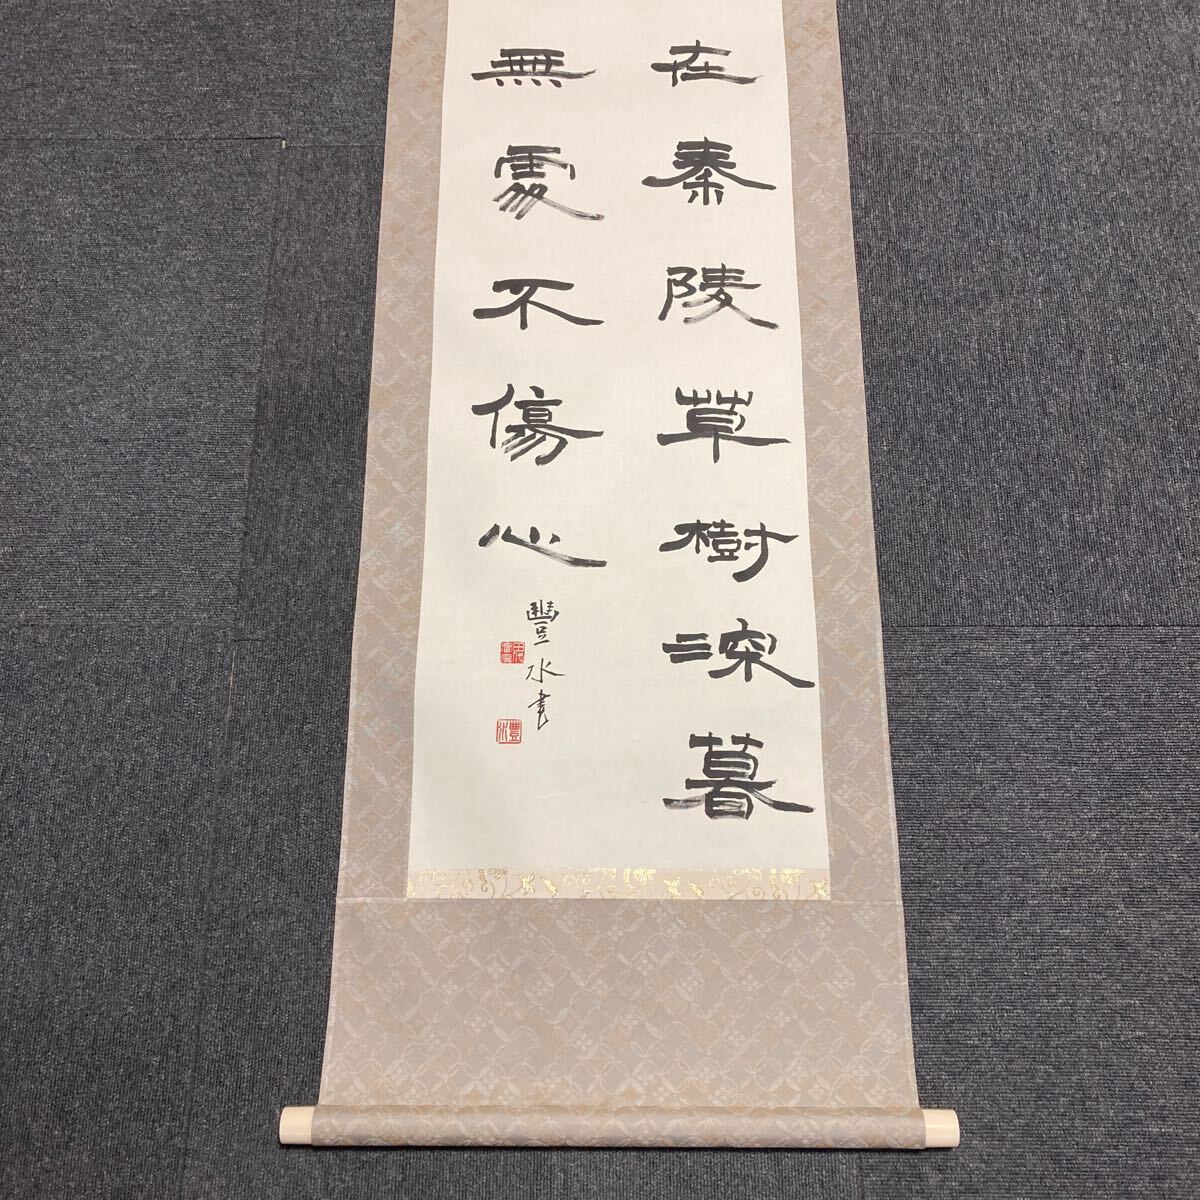 在秦陵草樹深暮
無處不傷心
豐水書
豐水